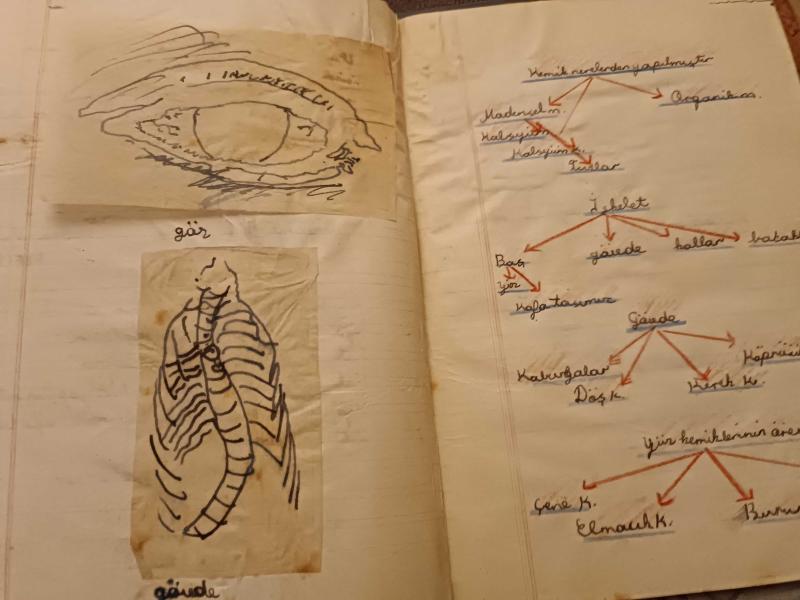 göz
gövde
Kemik nerelerden yapılmıştır
Madensel m.
Organik m.
Kalsyüm
Kalsyüm k.
Tuzlar
İskelet
Baş
gövde
kollar
yüz
Kafa tasımız
Gövde
Kaburgalar
Döş k.
Kürek K.
Köprücü
Yüz kemiklerinin
Çene K.
Elmacık K.
Burun